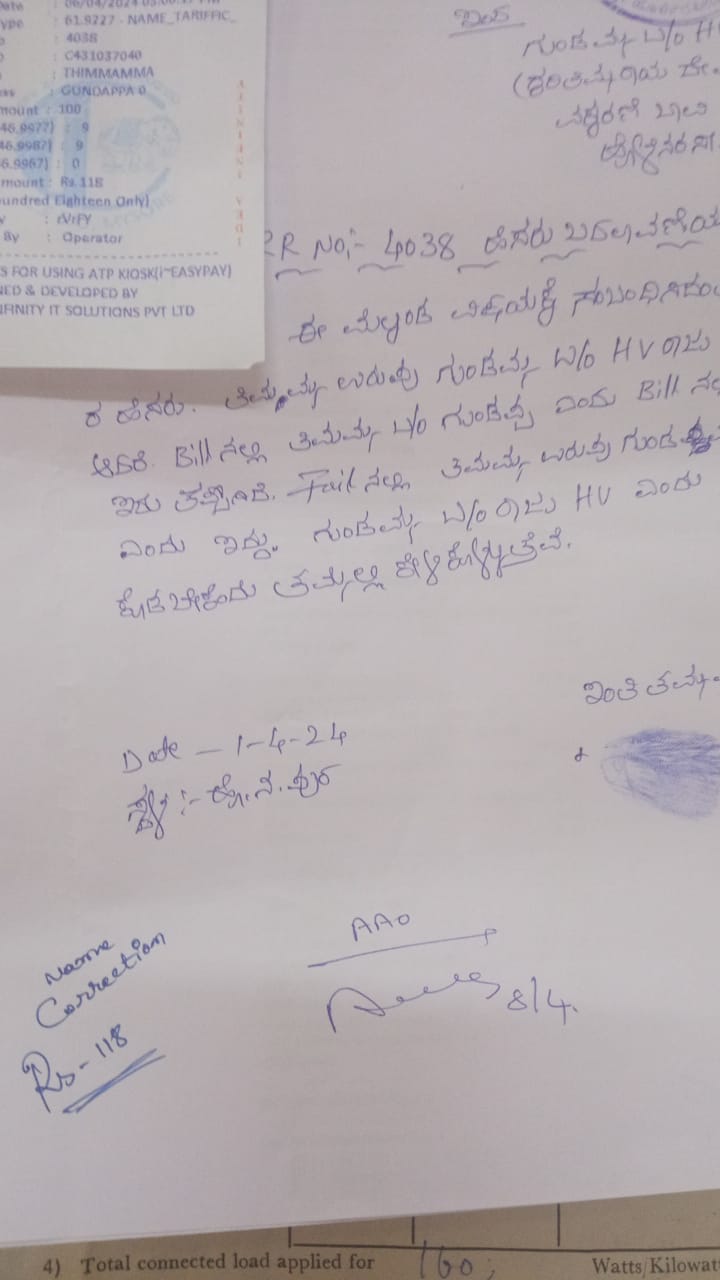 ate : 06/04/2024
ype : 61.9227 - NAME_TARIFFIC_
: 4038
: C431037040
: THIMMAMMA
: GUNDAPPA 0
mount : 100
46.9977) : 9
46.9987) : 9
6.9967) : 0
mount : Rs.118
undred Eighteen Only)
: rVrFY
By : Operator
S FOR USING ATP KIOSK(i~EASYPAY)
NED & DEVELOPED BY
FINITY IT SOLUTIONS PVT LTD
ಗುಂಡಮ್ಮ W/o H
RR No;- 4038 ಹೆಸರು ಬದಲಾವಣೆಯ
ಈ ಮೇಲ್ಕಂಡ ವಿಷಯಕ್ಕೆ
ಹೆಸರು. ತಿಮ್ಮಮ್ಮ ಉರುಫು ಗುಂಡಮ್ಮ W/o HV ರಾಜು
ಆದರೆ. Bill ನಲ್ಲಿ ತಿಮಮ್ಮ W/o ಗುಂಡಪ್ಪ ಎಂದು Bill ನಲ್ಲಿ
ಇದು Fail ನಲ್ಲಿ ತಿಮಮ್ಮ ಉರುಫು
ಎಂದು ಇದ್ದು. ಗುಂಡಮ್ಮ W/o ರಾಜು HV ಎಂದು
ಕೊಡಬೇಕೆಂದು ತಮ್ಮಲ್ಲಿ ಕೇಳಿಕೊಳ್ಳುತ್ತೆವೆ.
ಇಂತಿ ತಮ್ಮ
Date – 1-4-24
ಸ್ಥಳ :- ಹೊ.ನ.ಪುರ
AAO
8/4.
Name
Correction
Rs - 118
4) Total connected load applied for 160 Watts/Kilowat